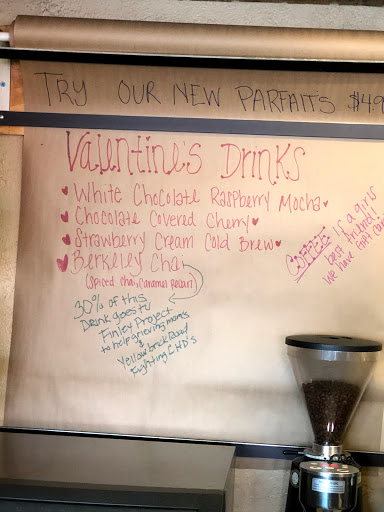 TRY OUR NEW PARFAITS $4.9
Valentine's Drinks
White Chocolate Raspberry Mocha
Chocolate Covered Cherry
Strawberry Cream Cold Brew
Berkeley Chai
(Spiced Chai, Caramel Pecan)
30% of this
Drink goes to
Finley Project
to help grieving moms
&
Yellow brick Road
Fighting CHD's
COFFEE is a girls
best friend!
We have Gift Car